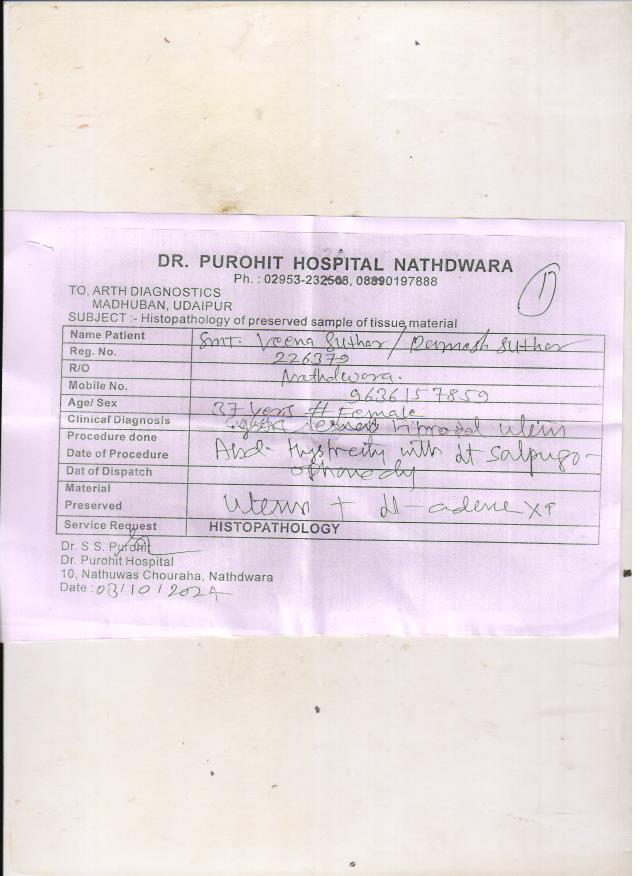 1
DR. PUROHIT HOSPITAL NATHDWARA
Ph. : 02953-232508, 08890197888
TO, ARTH DIAGNOSTICS
MADHUBAN, UDAIPUR
SUBJECT :- Histopathology of preserved sample of tissue material
Name Patient Smt. Veena Suthar /
Reg. No. 226379
R/O Nathdwara.
Mobile No. 9636157859
Age/ Sex 37 years # Female
Clinical Diagnosis
Procedure done
Date of Procedure Abd. with
Dat of Dispatch
Material
Preserved Uterus +
Service Request HISTOPATHOLOGY
Dr. S S. Purohit
Dr. Purohit Hospital
10, Nathuwas Chouraha, Nathdwara
Date : 03/10/2024